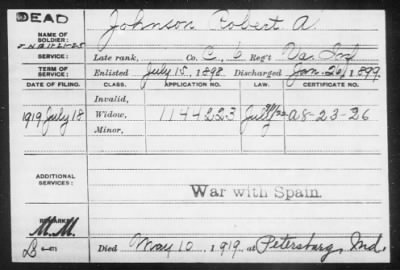 DEAD
Johnson Robert A.
NAME OF SOLDIER:
SERVICE: Late rank, Co. C, 6 Reg't Va. Inf
TERM OF SERVICE: Enlisted July 15, 1898. Discharged Jan. 26, 1899.
DATE OF FILING. CLASS. APPLICATION NO. LAW. CERTIFICATE NO.
Invalid,
1919 July 18 Widow, 1144223 A8-23-26
Minor,
ADDITIONAL SERVICES:
War with Spain.
REMARKS:
M.M.
Died May 10, 1919, at Petersburg, Ind.